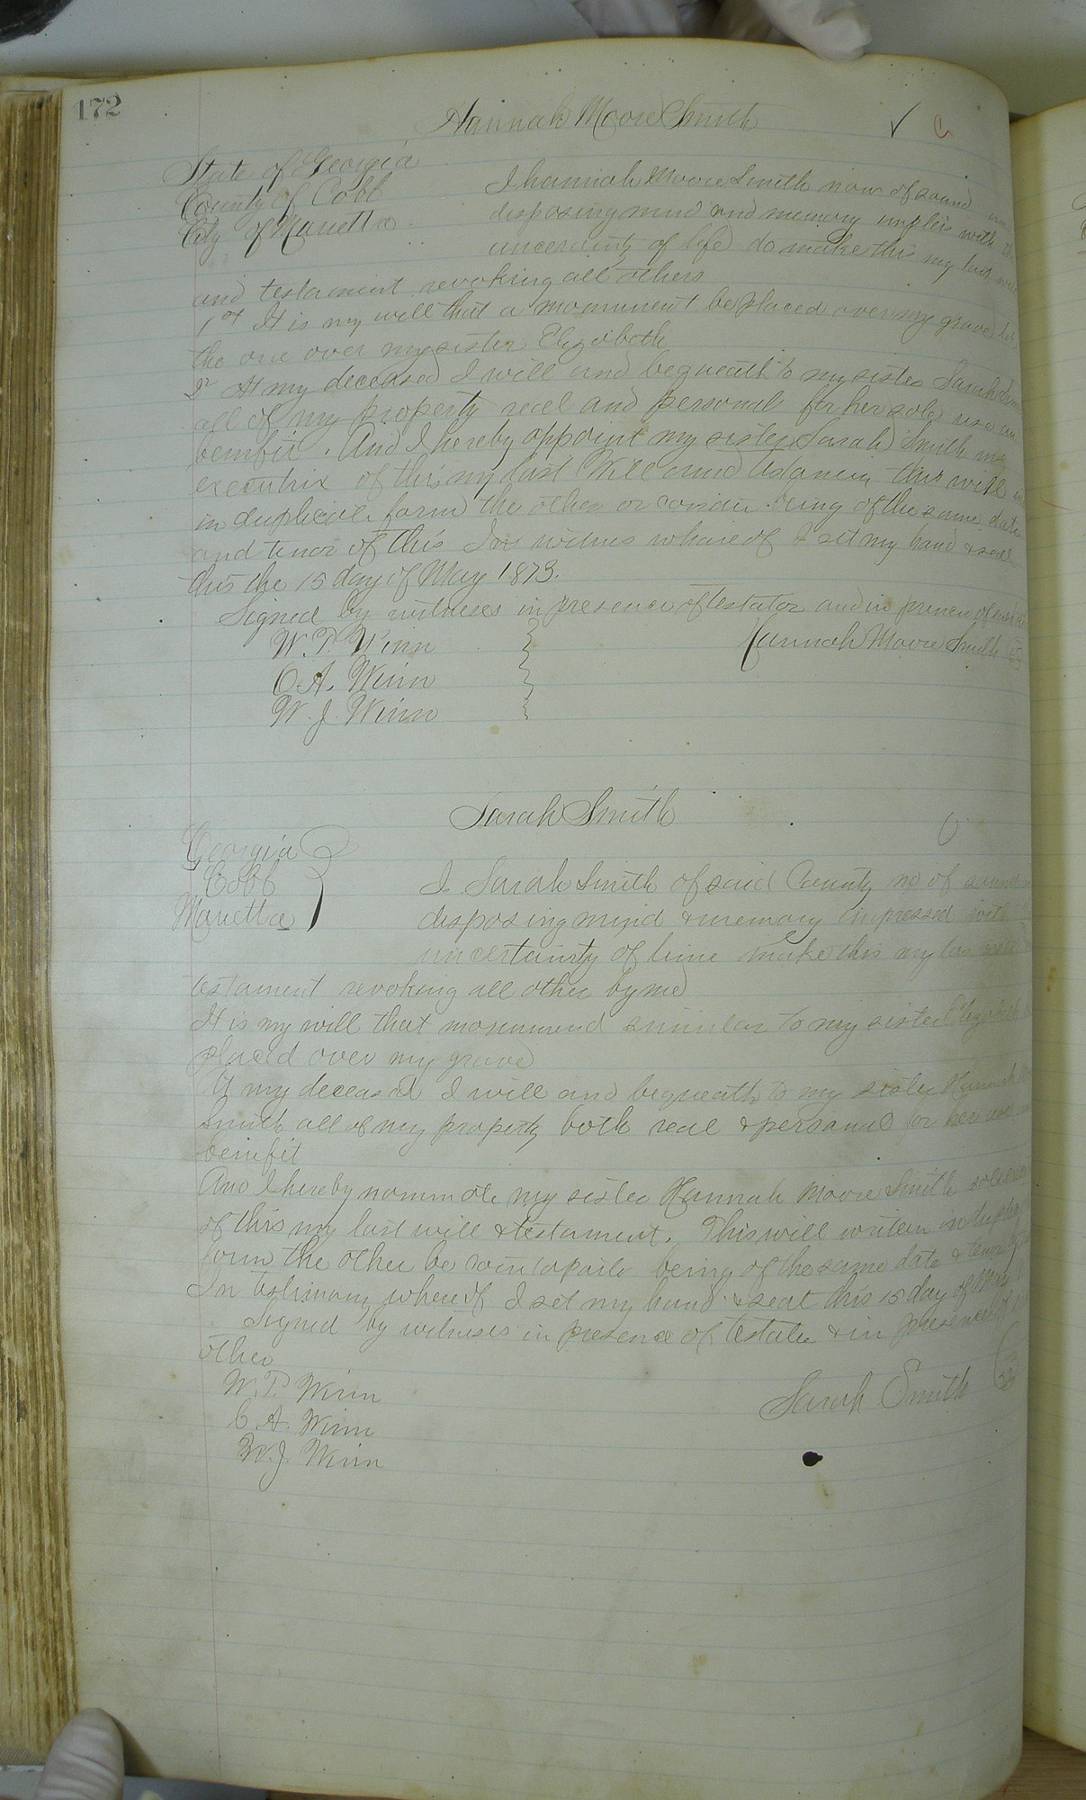 172
Hannah Moore Smith
State of Georgia
County of Cobb
City of Marietta
I hannah Moore Smith now of sound
disposing mind and memory with
uncertainty of life do make this my last
and testament revoking all others
1st It is my will that a monument be placed over my grave
the one over my sister Elizabeth
2 At my deceased I will and bequeath to my sister Sarah
all of my property real and personal for her sole use
benifit. And I hereby appoint my sister Sarah Smith my
executrix of this my last Will and this will
in duplicate form the other or being of the same date
and tenor of this In witness whereof I set my hand & seal
this the 15 day of May 1873.
Signed by witnesses in presence of testator and in
W. P. Winn
Hannah Moore Smith
C. A. Winn
W. J. Winn
Sarah Smith
Georgia
Cobb
Marietta
I Sarah Smith of said County of sound
disposing mind & memory impressed with
uncertainty of make this my las
testament revoking all other by me
It is my will that similar to my sister
placed over my grave
At my deceased I will and bequeath to my sister Hannah
Smith all of my property both real & personal for her use
benifit
And I hereby nominate my sister Hannah Moore Smith
of this my last will & testament. This will written in
form the other being of the same date &
In testimony whereof I set my hand & seal this 15 day of
Signed by witnesses in presence of & in presence of
other
W. P. Winn
Sarah Smith
C. A. Winn
W. J. Winn